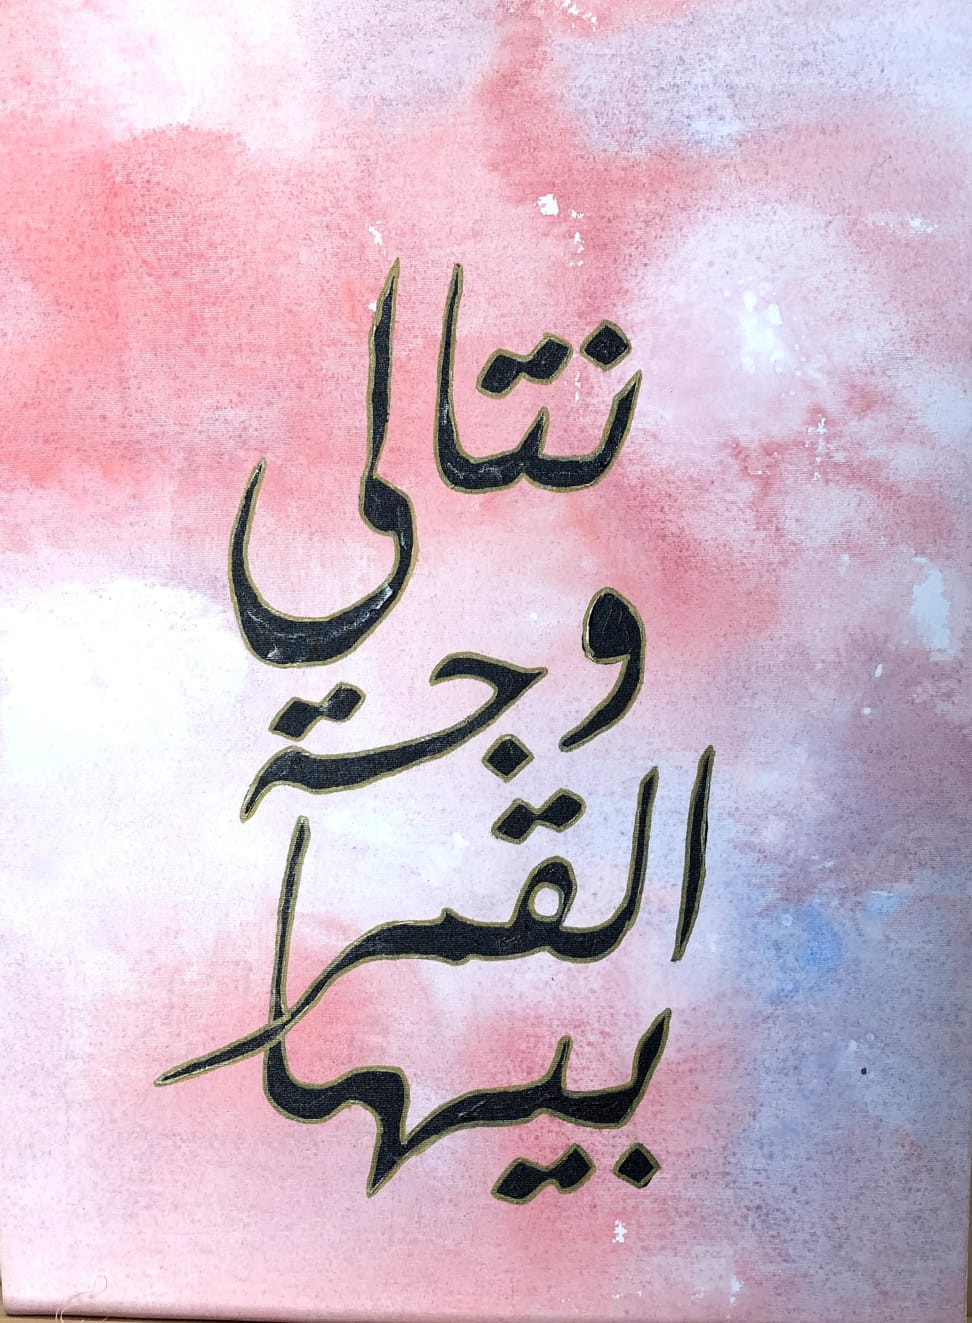 نتالي
وجة
القمر
بيها